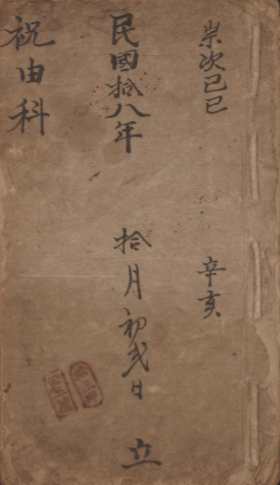 崇次己巳　辛亥
民國拾八年　拾月初弍日　立
祝由科